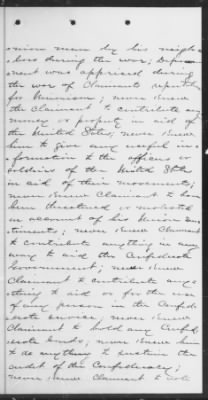 union man by his neigh-
bors during the war; Depo-
nent was apprised during
the war of Claimants reputation
for Unionism; never knew
the Claimant to contribute any
money or property in aid of
the United States; never knew
him to give any useful in-
formation to the officers or
soldiers of the United States
in aid of their movements;
never knew Claimant to be
threatened or molested
on account of his Union sen-
timents; never knew Claimant
to contribute anything in any
way to aid the Confederate
Government; never knew
Claimant to contribute any-
thing to aid or for the use
of any person in the Confed-
erate service; never knew
Claimant to hold any Confed-
erate bonds; never knew him
to do anything to sustain the
credit of the Confederacy;
never knew Claimant to